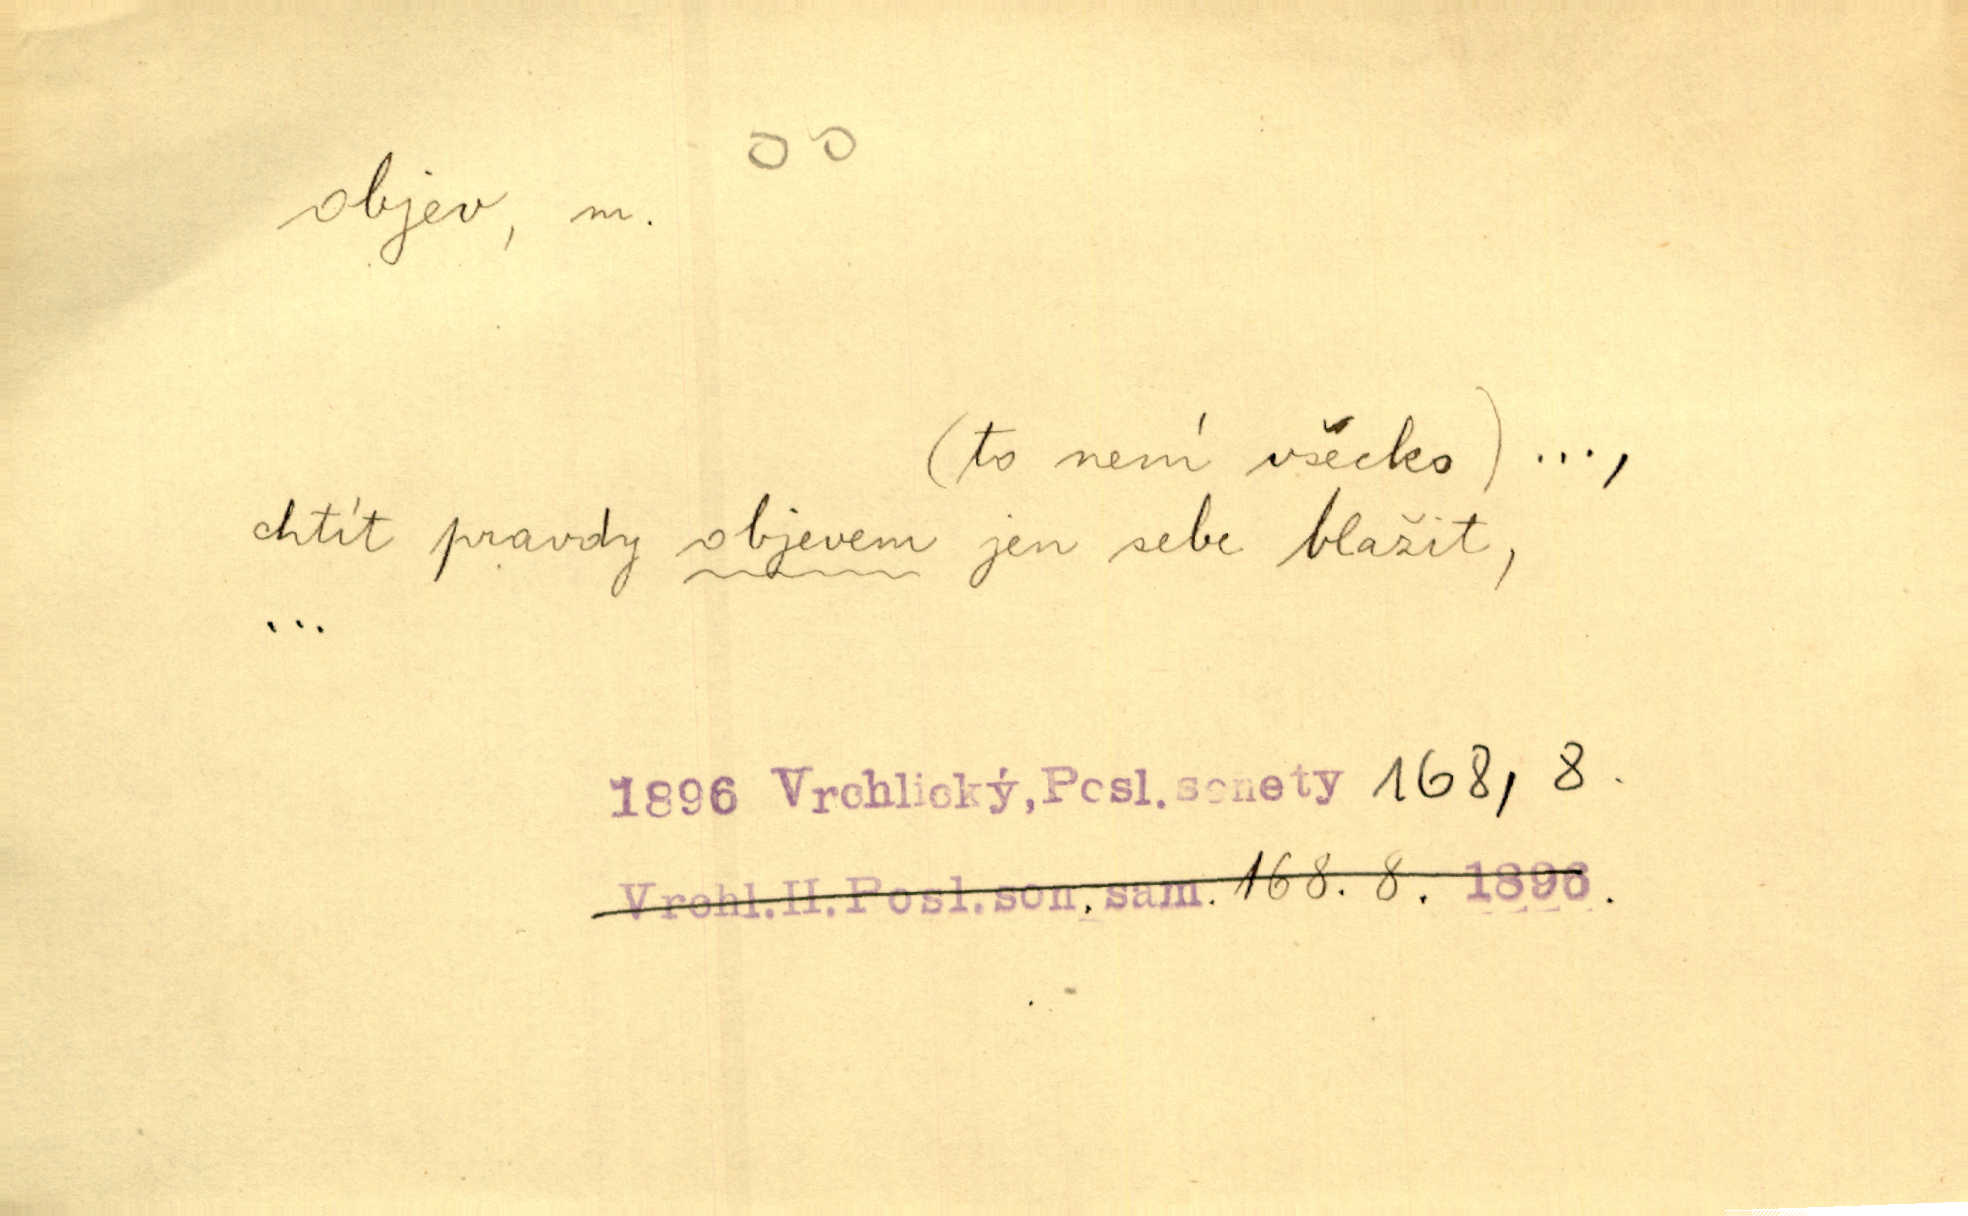 objev, m.
(to není všecko) ...,
chtít pravdy objevem jen sebe blažit,
...
1896 Vrchlický, Posl. sonety 168, 8.
Vrchl. II. Posl. son. sam. 168. 8. 1896.